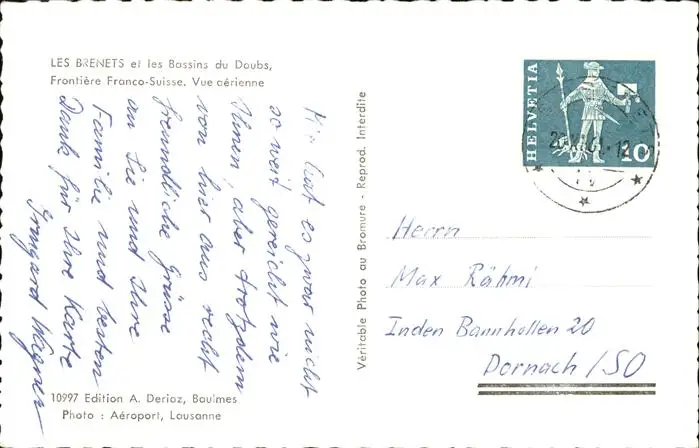 LES BRENETS et les Bassins du Doubs,
Frontière Franco-Suisse. Vue aérienne
Mir hat es zwar nicht
so weit gereicht wie
Ihnen, aber trotzdem
von hier aus recht
freundliche Grüsse
an Sie und Ihre
Familie und besten
Dank für Ihre Karte
Irmgard Wagner
10997 Edition A. Deriaz, Baulmes
Photo : Aéroport, Lausanne
Véritable Photo au Bromure - Reprod. Interdite
HELVETIA
10
Herrn
Max Rähmi
Inden Bannhollen 20
Dornach/SO